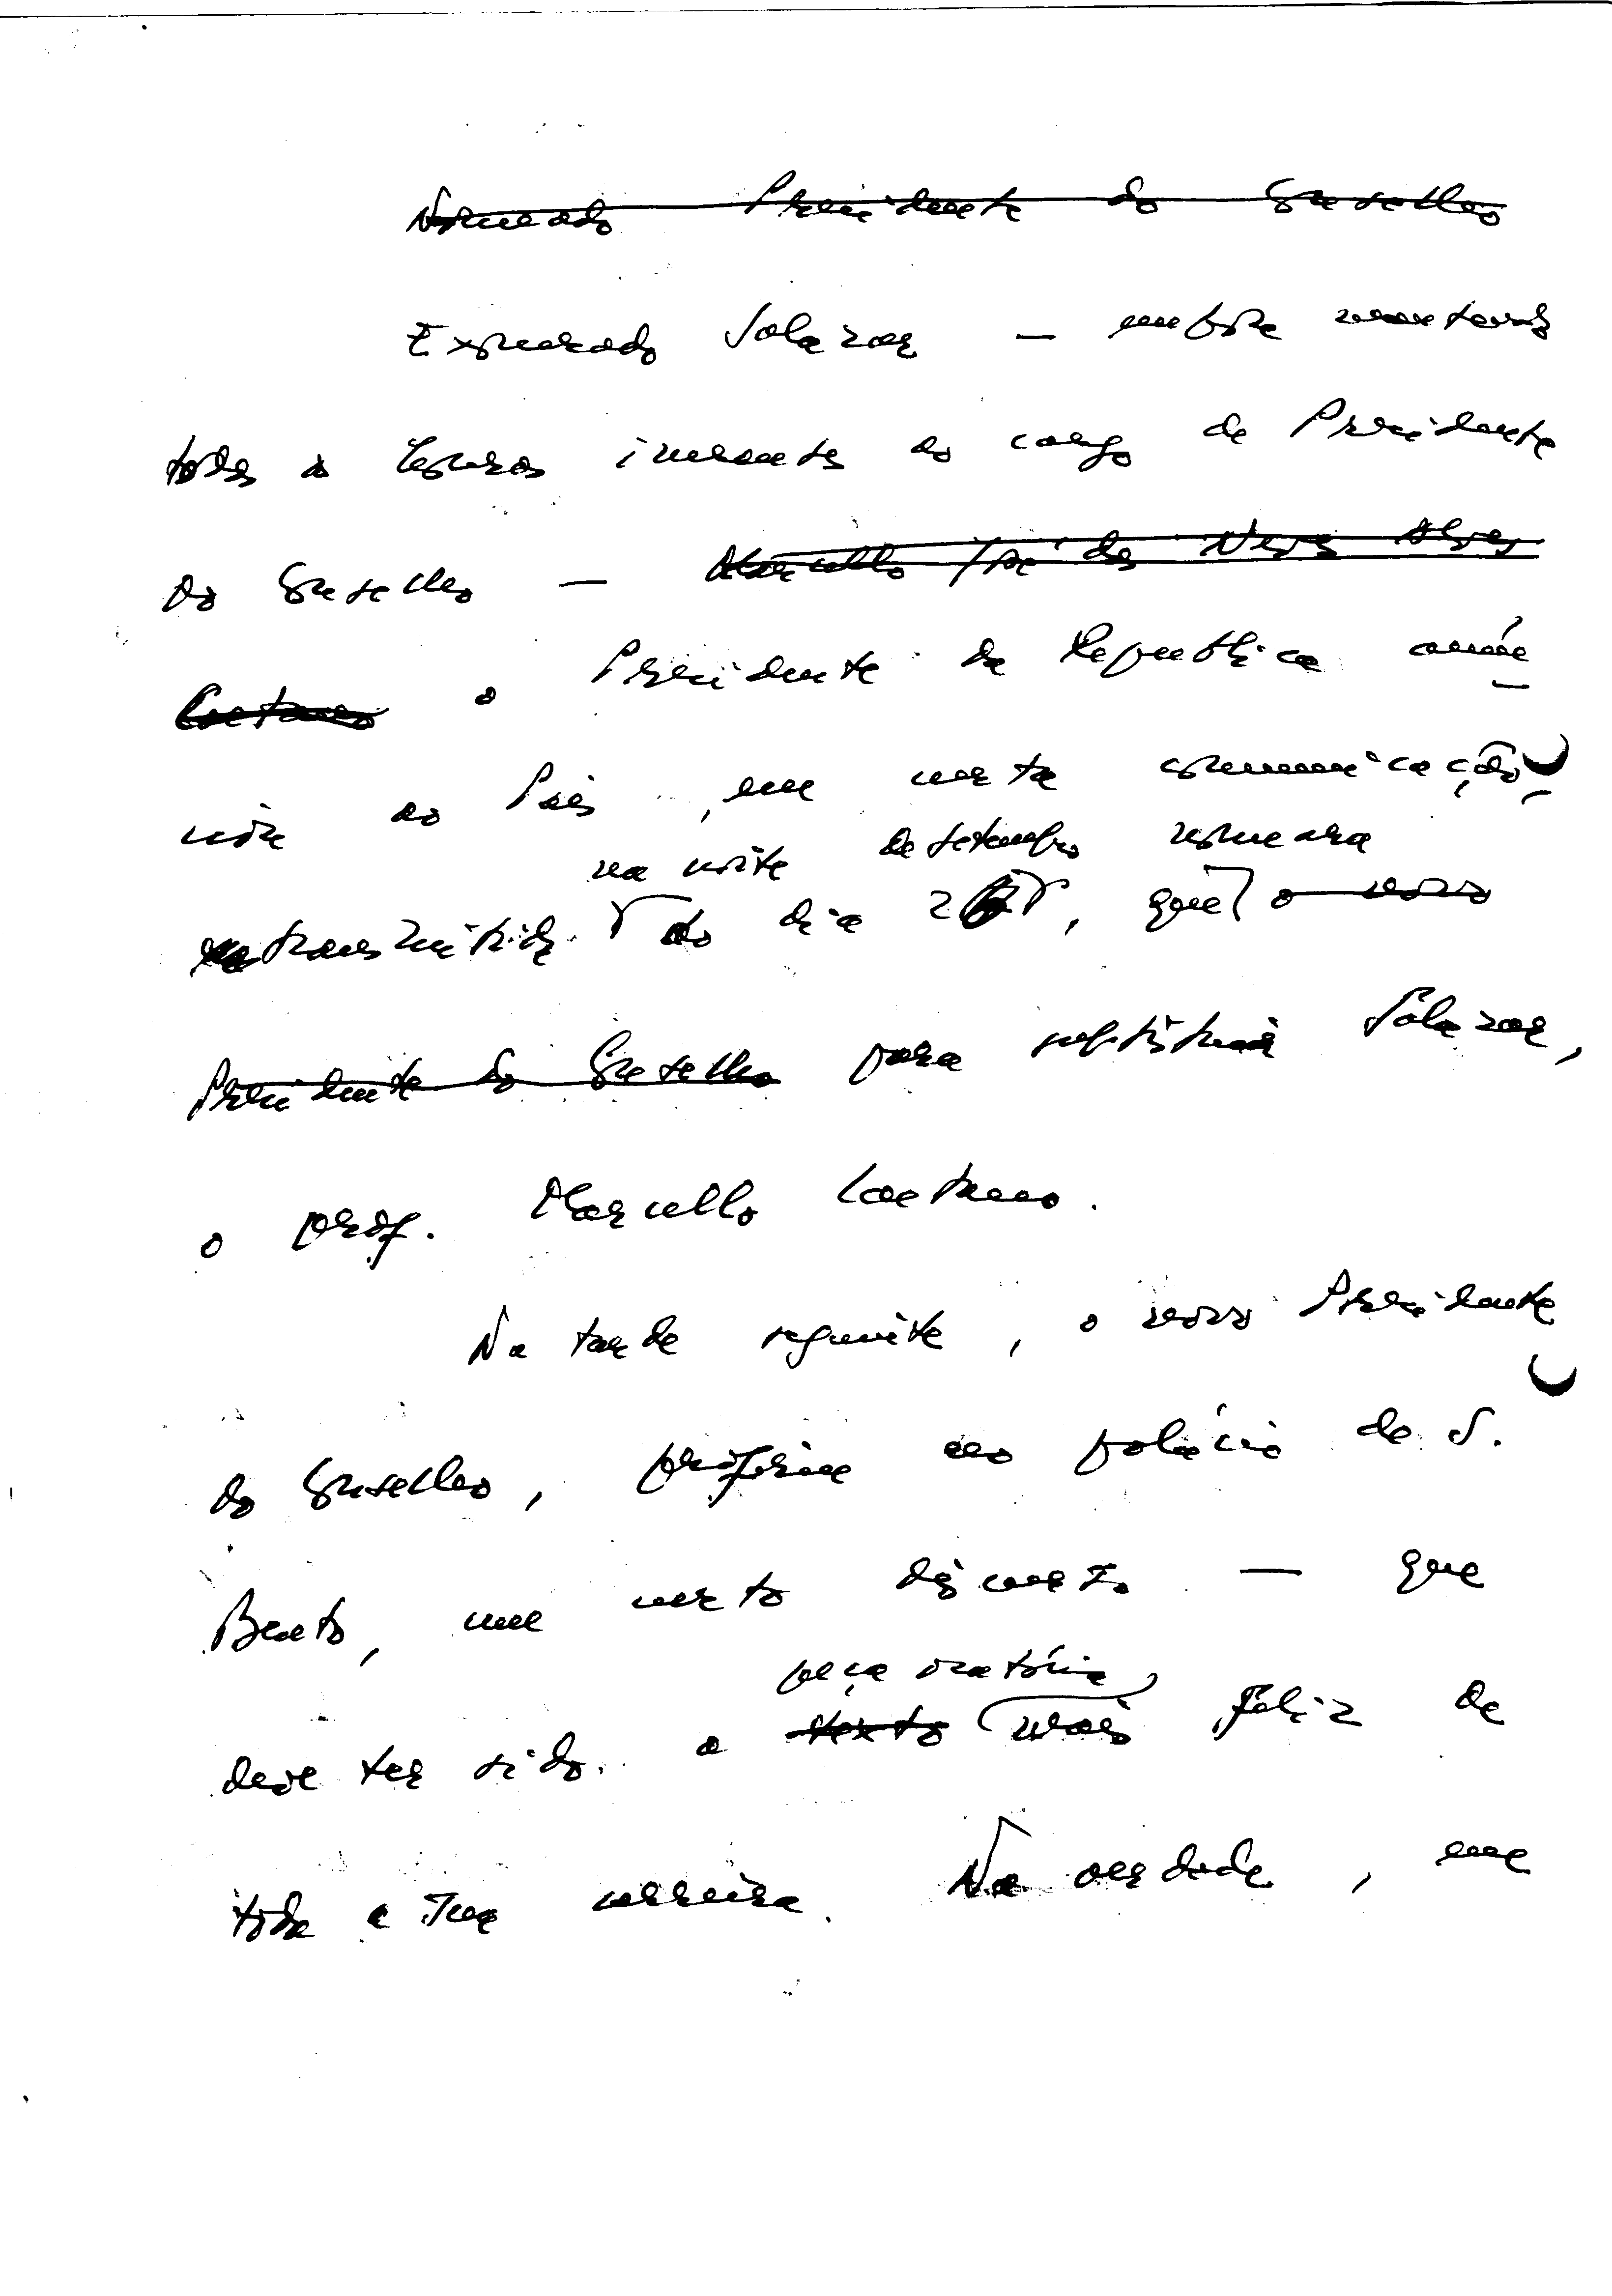 Nomeado Presidente do Conselho
Exonerado Salazar — embora mantendo
todas as honras inerentes ao cargo de Presidente
do Conselho — Marcello José das Neves Alves
Caetano o Presidente da República anun-
cia ao País, em curta comunicação,
na noite de setembro nomeara
transmitida do dia 26, que o novo
Presidente do Conselho para substituir Salazar,
o prof. Marcello Caetano.
Na tarde seguinte, o novo Presidente
do Conselho, proferia no palácio de S.
Bento, um curto discurso — que
peça oratória
deve ter sido a texto mais feliz de
toda a sua carreira. Na verdade, em